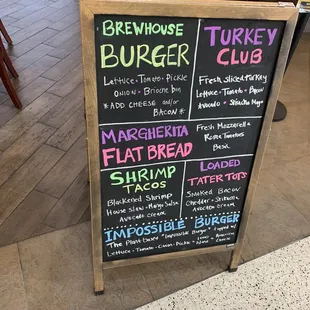 BREWHOUSE
BURGER
LETTUCE • TOMATO • PICKLE
ONION • BRIOCHE BUN
* ADD CHEESE and/or
BACON *
TURKEY
CLUB
FRESH SLICED TURKEY
LETTUCE • TOMATO • BACON
AVOCADO • SRIRACHA MAYO
MARGHERITA
FLAT BREAD
FRESH MOZZARELLA
ROMA TOMATOES
BASIL
SHRIMP
TACOS
BLACKENED SHRIMP
HOUSE SLAW • MANGO SALSA
AVOCADO CREAM
LOADED
TATER TOTS
SMOKED BACON
CHEDDAR • SRIRACHA
AVOCADO CREAM
IMPOSSIBLE BURGER
THE PLANT BASED "IMPOSSIBLE BURGER" TOPPED w/
LETTUCE • TOMATO • ONION • PICKLE